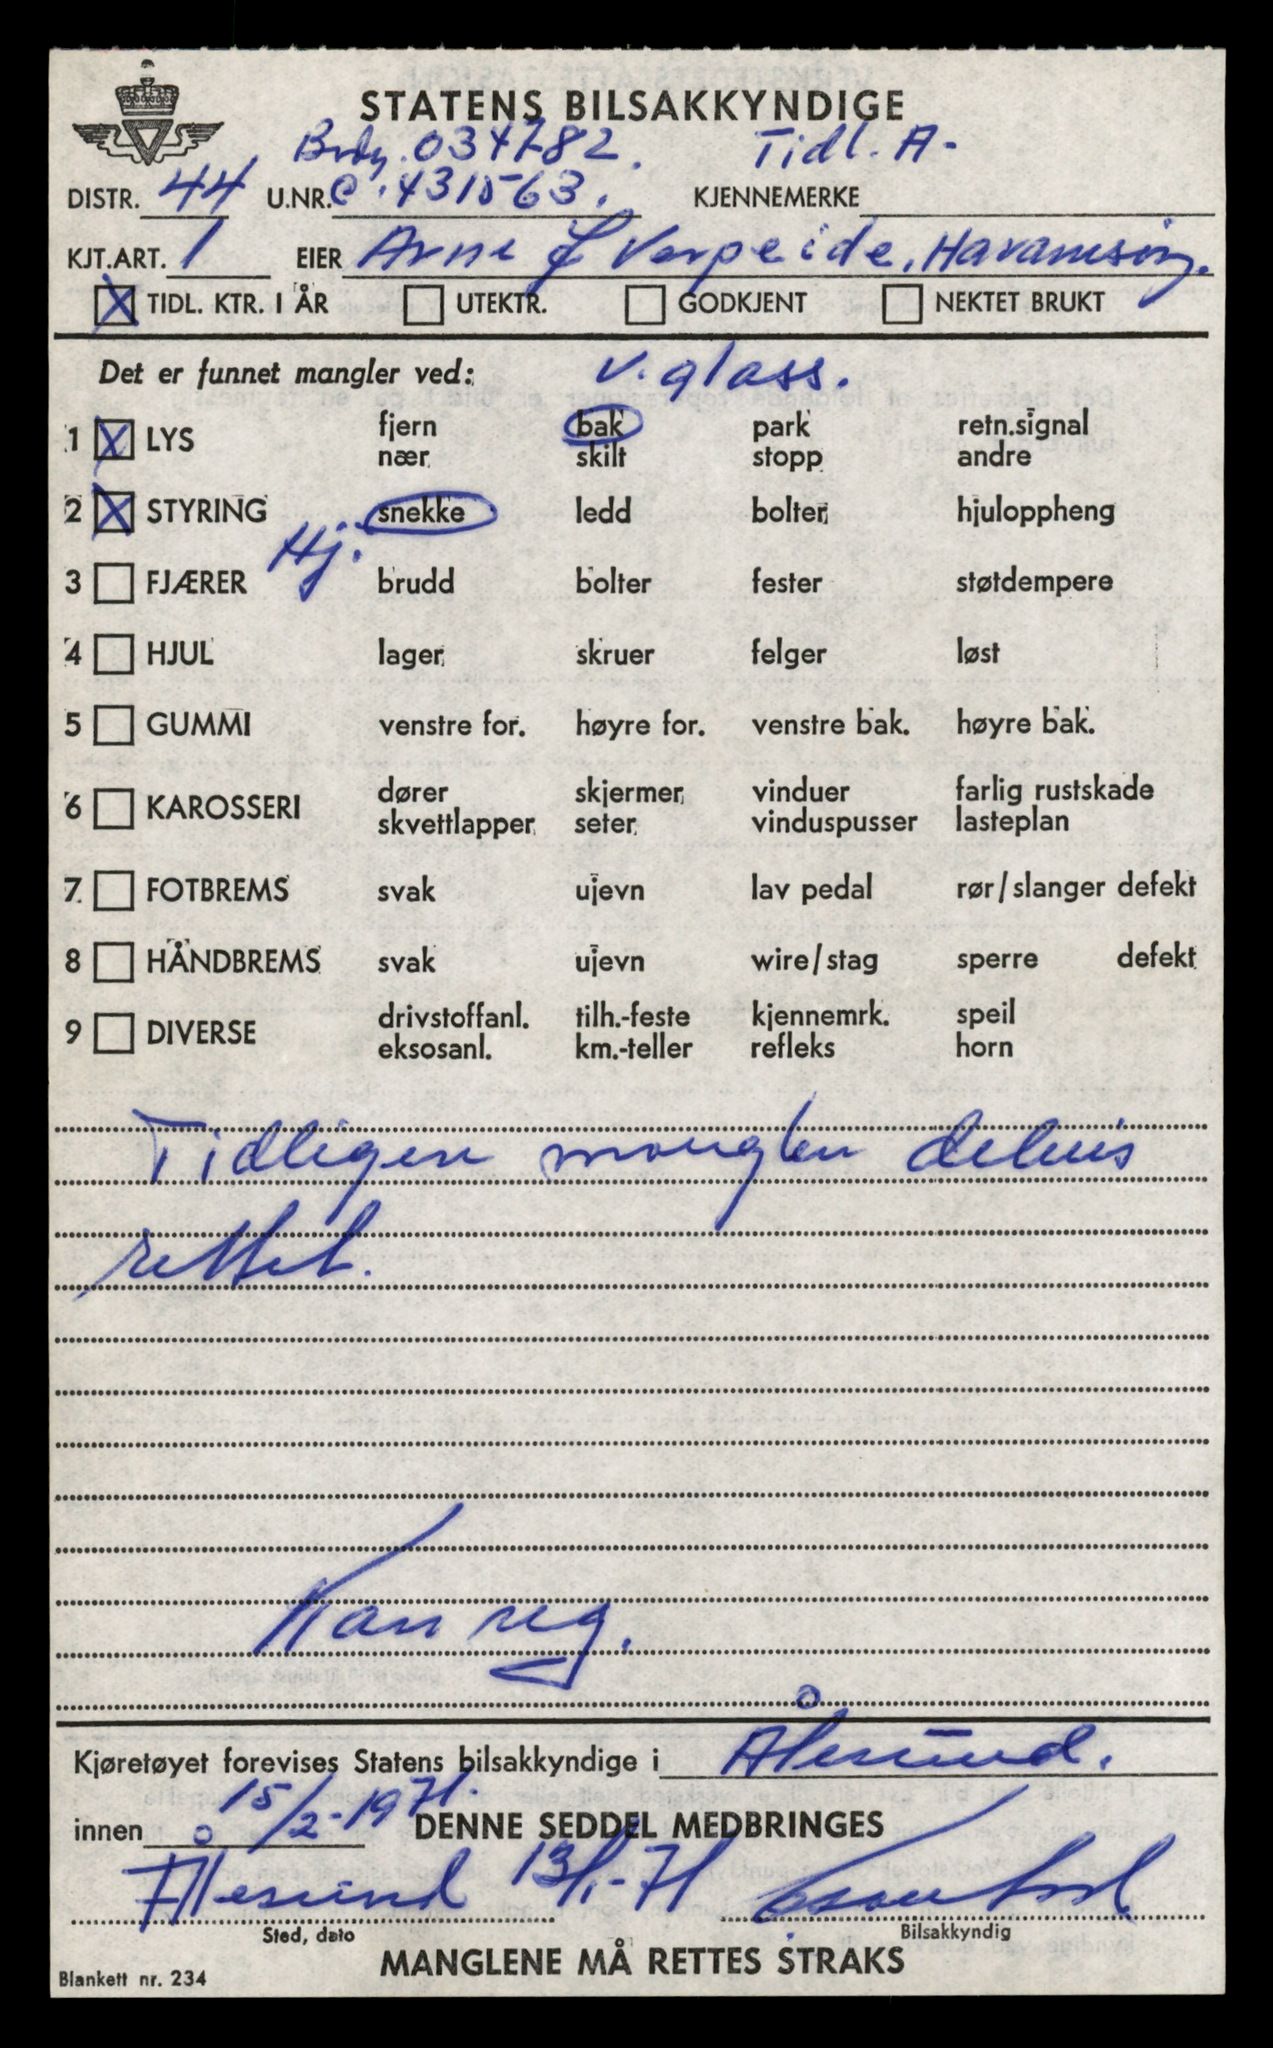 STATENS BILSAKKYNDIGE
Body. 034782. Tidl. A-
DISTR. 44 U.NR. C. 431563. KJENNEMERKE
KJT.ART. 1 EIER Arne Verpeide, Haramsøy.
X TIDL. KTR. I ÅR UTEKTR. GODKJENT NEKTET BRUKT
Det er funnet mangler ved: v. glass.
1 X LYS fjern bak park retn.signal
nær skilt stopp andre
2 X STYRING snekke ledd bolter hjuloppheng
Hj.
3 FJÆRER brudd bolter fester støtdempere
4 HJUL lager skruer felger løst
5 GUMMI venstre for. høyre for. venstre bak. høyre bak.
6 KAROSSERI dører skjermer vinduer farlig rustskade
skvettlapper seter vinduspusser lasteplan
7. FOTBREMS svak ujevn lav pedal rør/slanger defekt
8 HÅNDBREMS svak ujevn wire/stag sperre defekt
9 DIVERSE drivstoffanl. tilh.-feste kjennemrk. speil
eksosanl. km.-teller refleks horn
Tidligere mangler delvis
rettet.
Kan reg.
Kjøretøyet forevises Statens bilsakkyndige i Ålesund.
innen 15/2-1971. DENNE SEDDEL MEDBRINGES
Ålesund 13/1-71
Sted, dato Bilsakkyndig
MANGLENE MÅ RETTES STRAKS
Blankett nr. 234